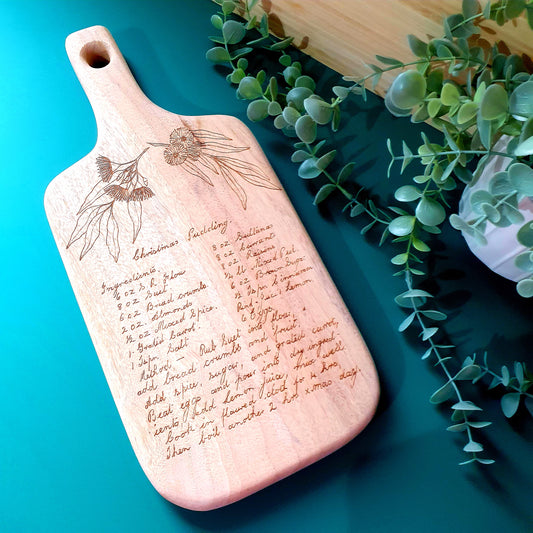 Christmas Pudding.
Ingredients:
6 oz S.R. Flour
8 oz Suet
6 oz Bread crumbs
2 oz Almonds
½ oz Mixed Spice.
1 Grated Carrot.
1 Tspn. Salt
8 oz Sultanas
8 oz Currants
8 oz Raisins
¼ lb Mixed Peel
6 oz Brown Sugar.
½ Tspn Cinnamon
Lemon
Method - Rub suet into flour,
add bread crumbs and fruit.
Add spice, sugar, and grated carrot,
Beat eggs and pour into dry ingred
ients. Add lemon juice, mix well
Cook in floured cloth for 4 hrs
Then boil another 2 hrs xmas day.